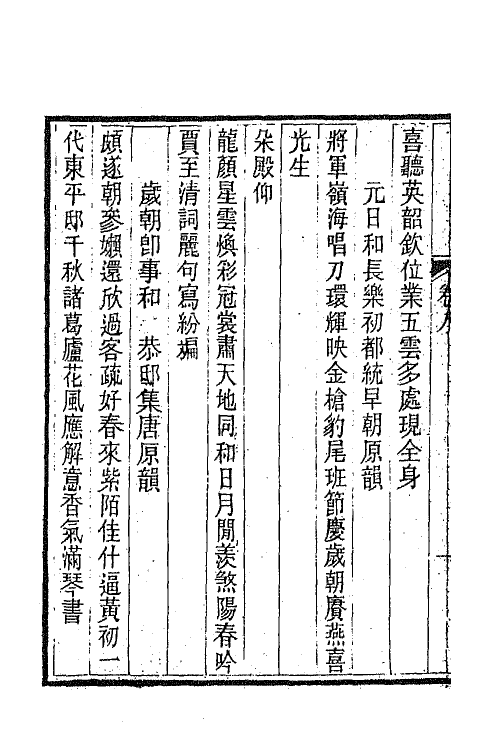 喜聽英韶欽位業五雲多處現全身
元日和長樂初都統早朝原韻
將軍嶺海唱刀環輝映金槍豹尾班節慶歲朝賡燕喜
光生
朵殿仰
龍顏星雲煥彩冠裳肅天地同和日月閒羨煞陽春吟
賈至清詞麗句寫紛綸
歲朝卽事和　恭邸集唐原韻
頗遂朝參嬾還欣過客疏好春來紫陌佳什逼黃初一
代東平邸千秋諸葛廬花風應解意香氣滿琴書